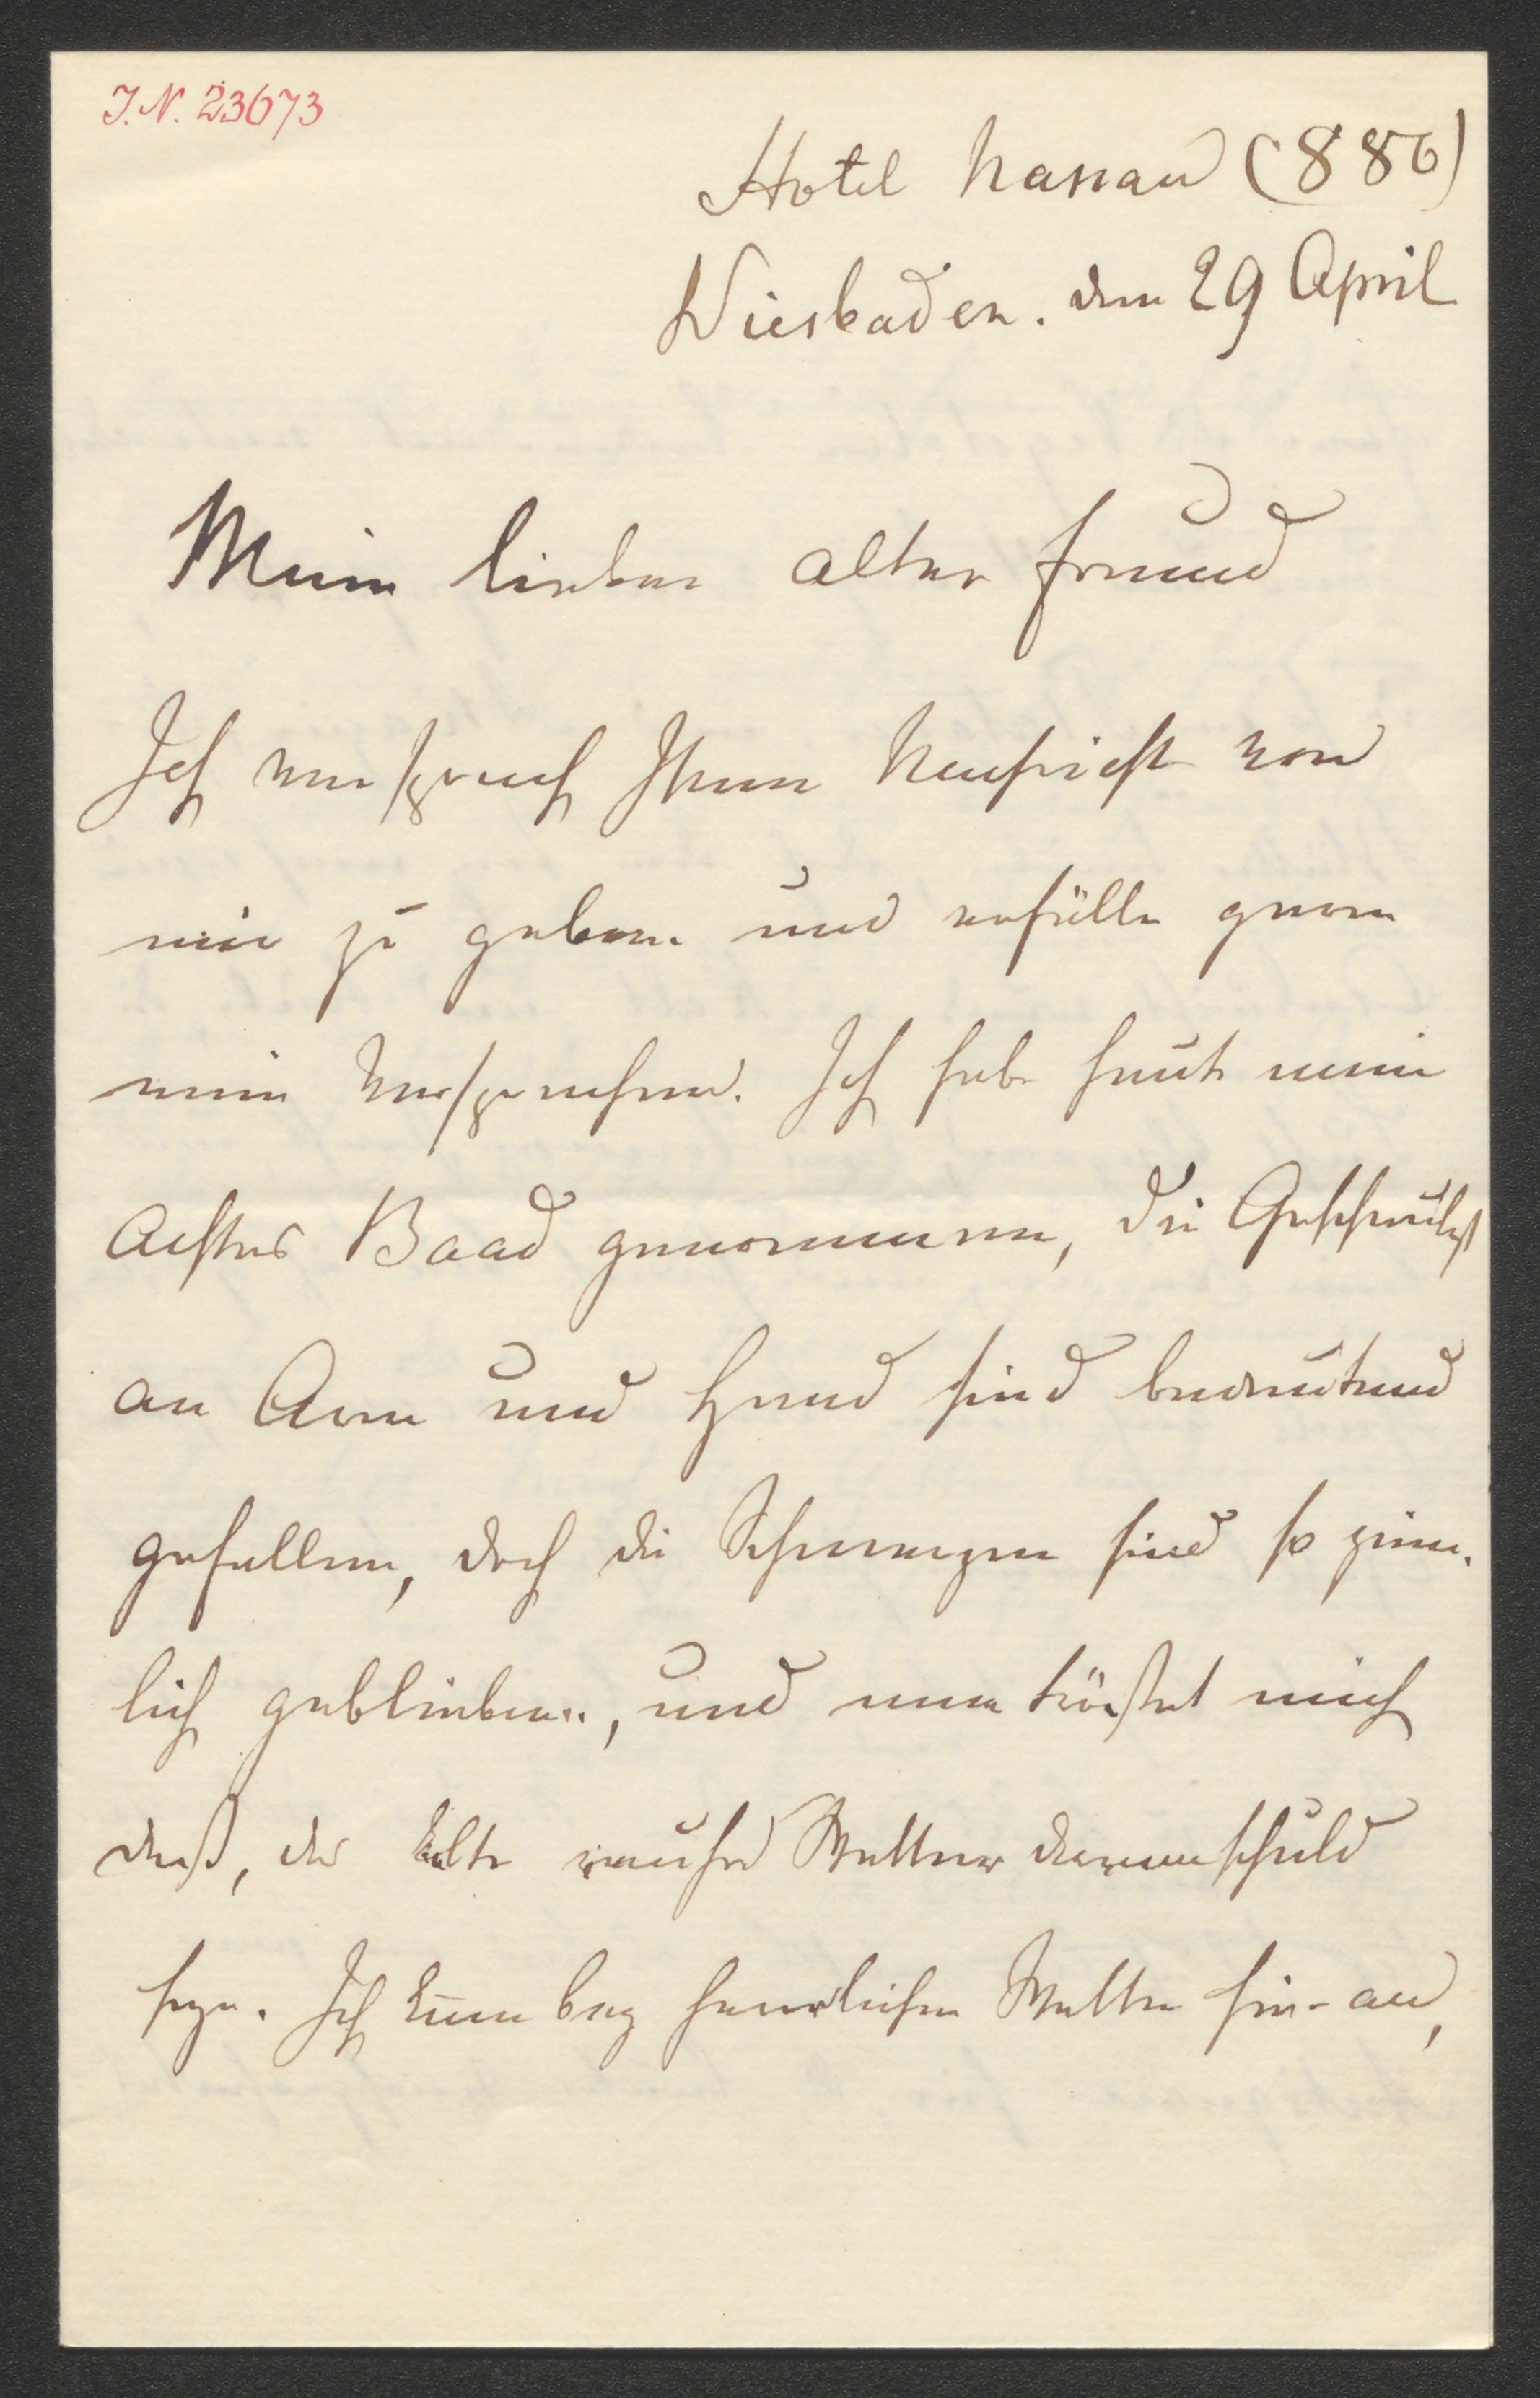 I.N. 23673
Hotel Nassau (886)
Wiesbaden. den 29 April
Mein lieber alter Freund
Ich versprach Ihnen Nachricht von
mir zu geben und erfülle gern
mein Versprechen. Ich habe heute mein
achtes Baad genommen, die Geschwulst
an Arm und Hand sind bedeutend
gefallen, doch die Schmerzen sind so ziem-
lich geblieben, und man tröstet mich
daß, das kalte rauhe Wetter daran schuld
sey. Ich kam bey herrlichen Wetter hier an,